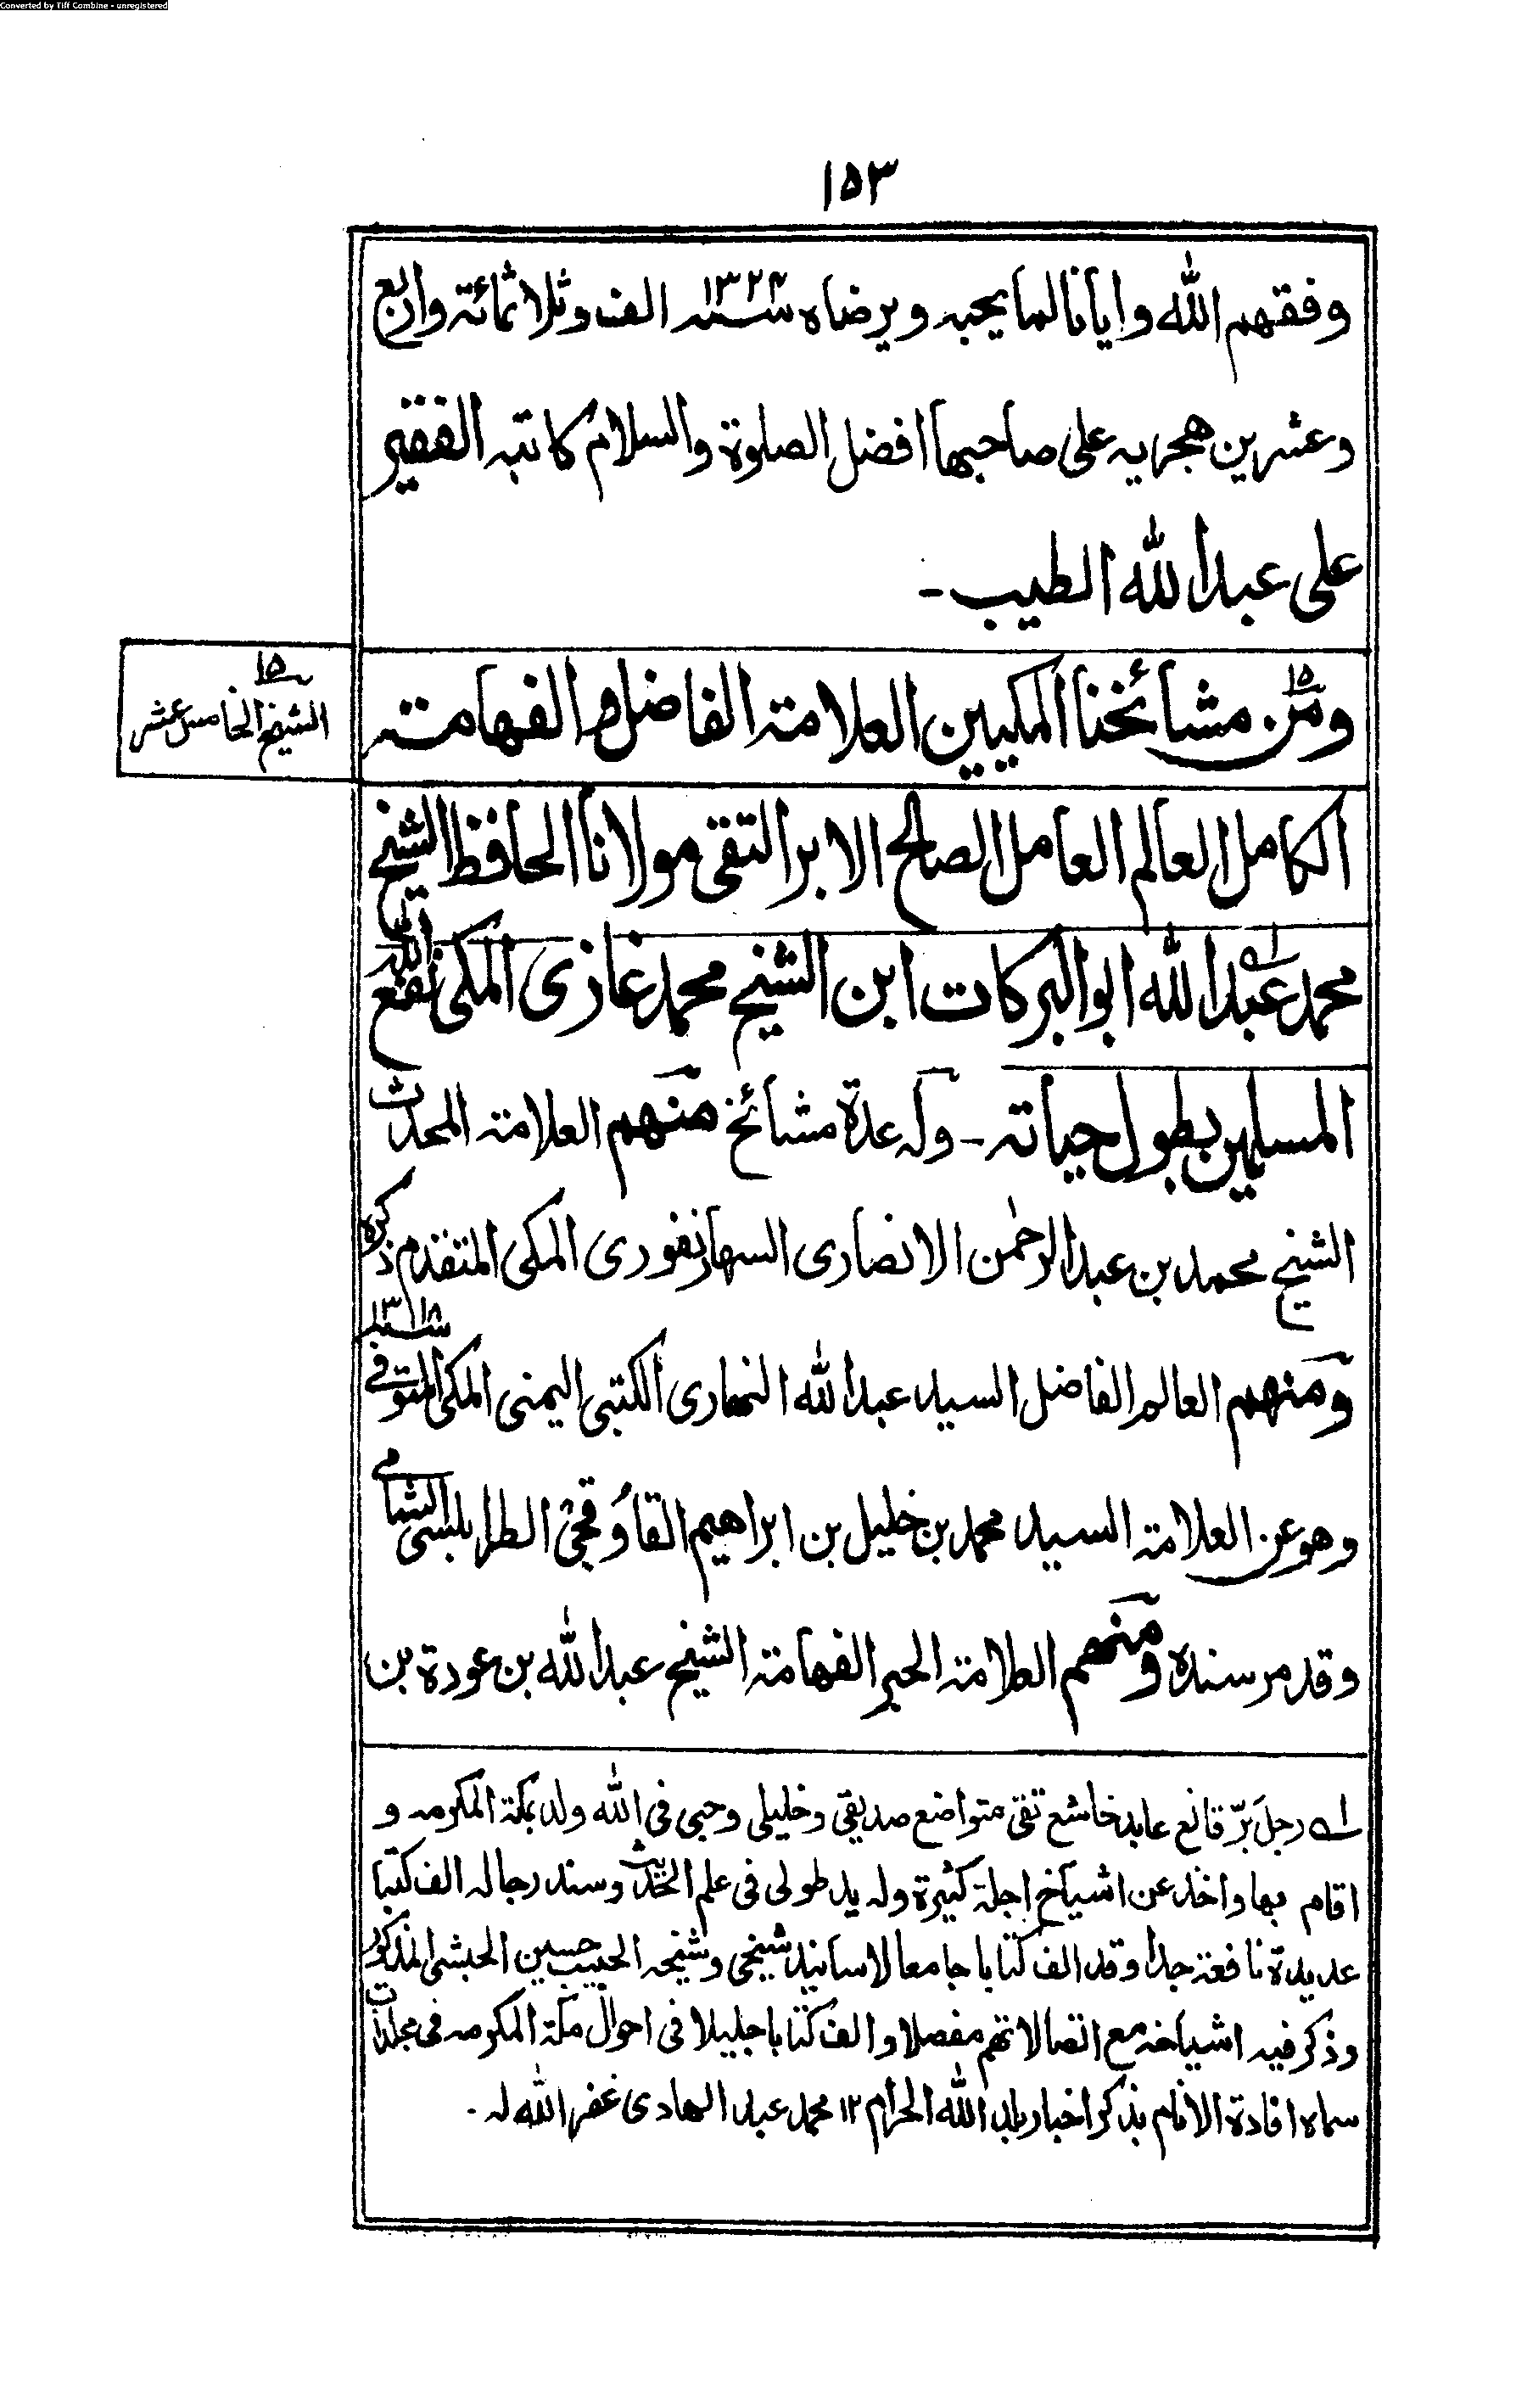 Converted by Tiff Combine - unregistered
١٥٣
وفقهم الله وايانا لما يحبه ويرضاه ١٣٢٤ سنه الف وثلاثمائة واربع
وعشرين هجريه على صاحبها افضل الصلوة والسلام كاتبه الفقير
على عبدالله الطيب -
١٥
الشيخ الخامس عشر
١٥
ومن مشائخنا المكيين العلامة الفاضل الفهامة
الكامل العالم العامل الصالح الابر التقى مولانا الحافظ الشيخ
محمد عبدالله ابوالبركات ابن الشيخ محمد غازى المكى نفع الله
المسلمين بطول حياته - وله عدة مشائخ منهم العلامة المحدث
الشيخ محمد بن عبدالرحمٰن الانصارى السهارنفورى المكى المتقدم ذكره
ومنهم العالم الفاضل السيد عبدالله النهارى الكتبى اليمنى المكى المتوفى سنه ١٣١٨
وهو عن العلامة السيد محمد بن خليل بن ابراهيم القاوُقجى الطرابلسى الشامى
وقد مر سنده ومنهم العلامة الحبر الفهامة الشيخ عبدالله بن عودة بن
ا‍ه رجل برّ قانع عابد خاشع تقى متواضع صديقى وخليلى وحبى فى الله ولد بمكة المكرمه و
اقام بها واخذ عن اشياخ اجلة كثيرة وله يد طولى فى علم الحديث وسند رجاله الف كتبا
عديدة نافعة جدا وقد الف كتابا جامعا لاسانيد شيخى وشيخه الحبيب حسين الحبشى المذكور
وذكر فيه اشياخه مع اتصالاتهم مفصلا والف كتابا جليلا فى احوال مكة المكرمه فى مجلدات
سماه افادة الانام بذكر اخبار بلد الله الحرام ١٢ محمد عبد الهادى غفر الله له -